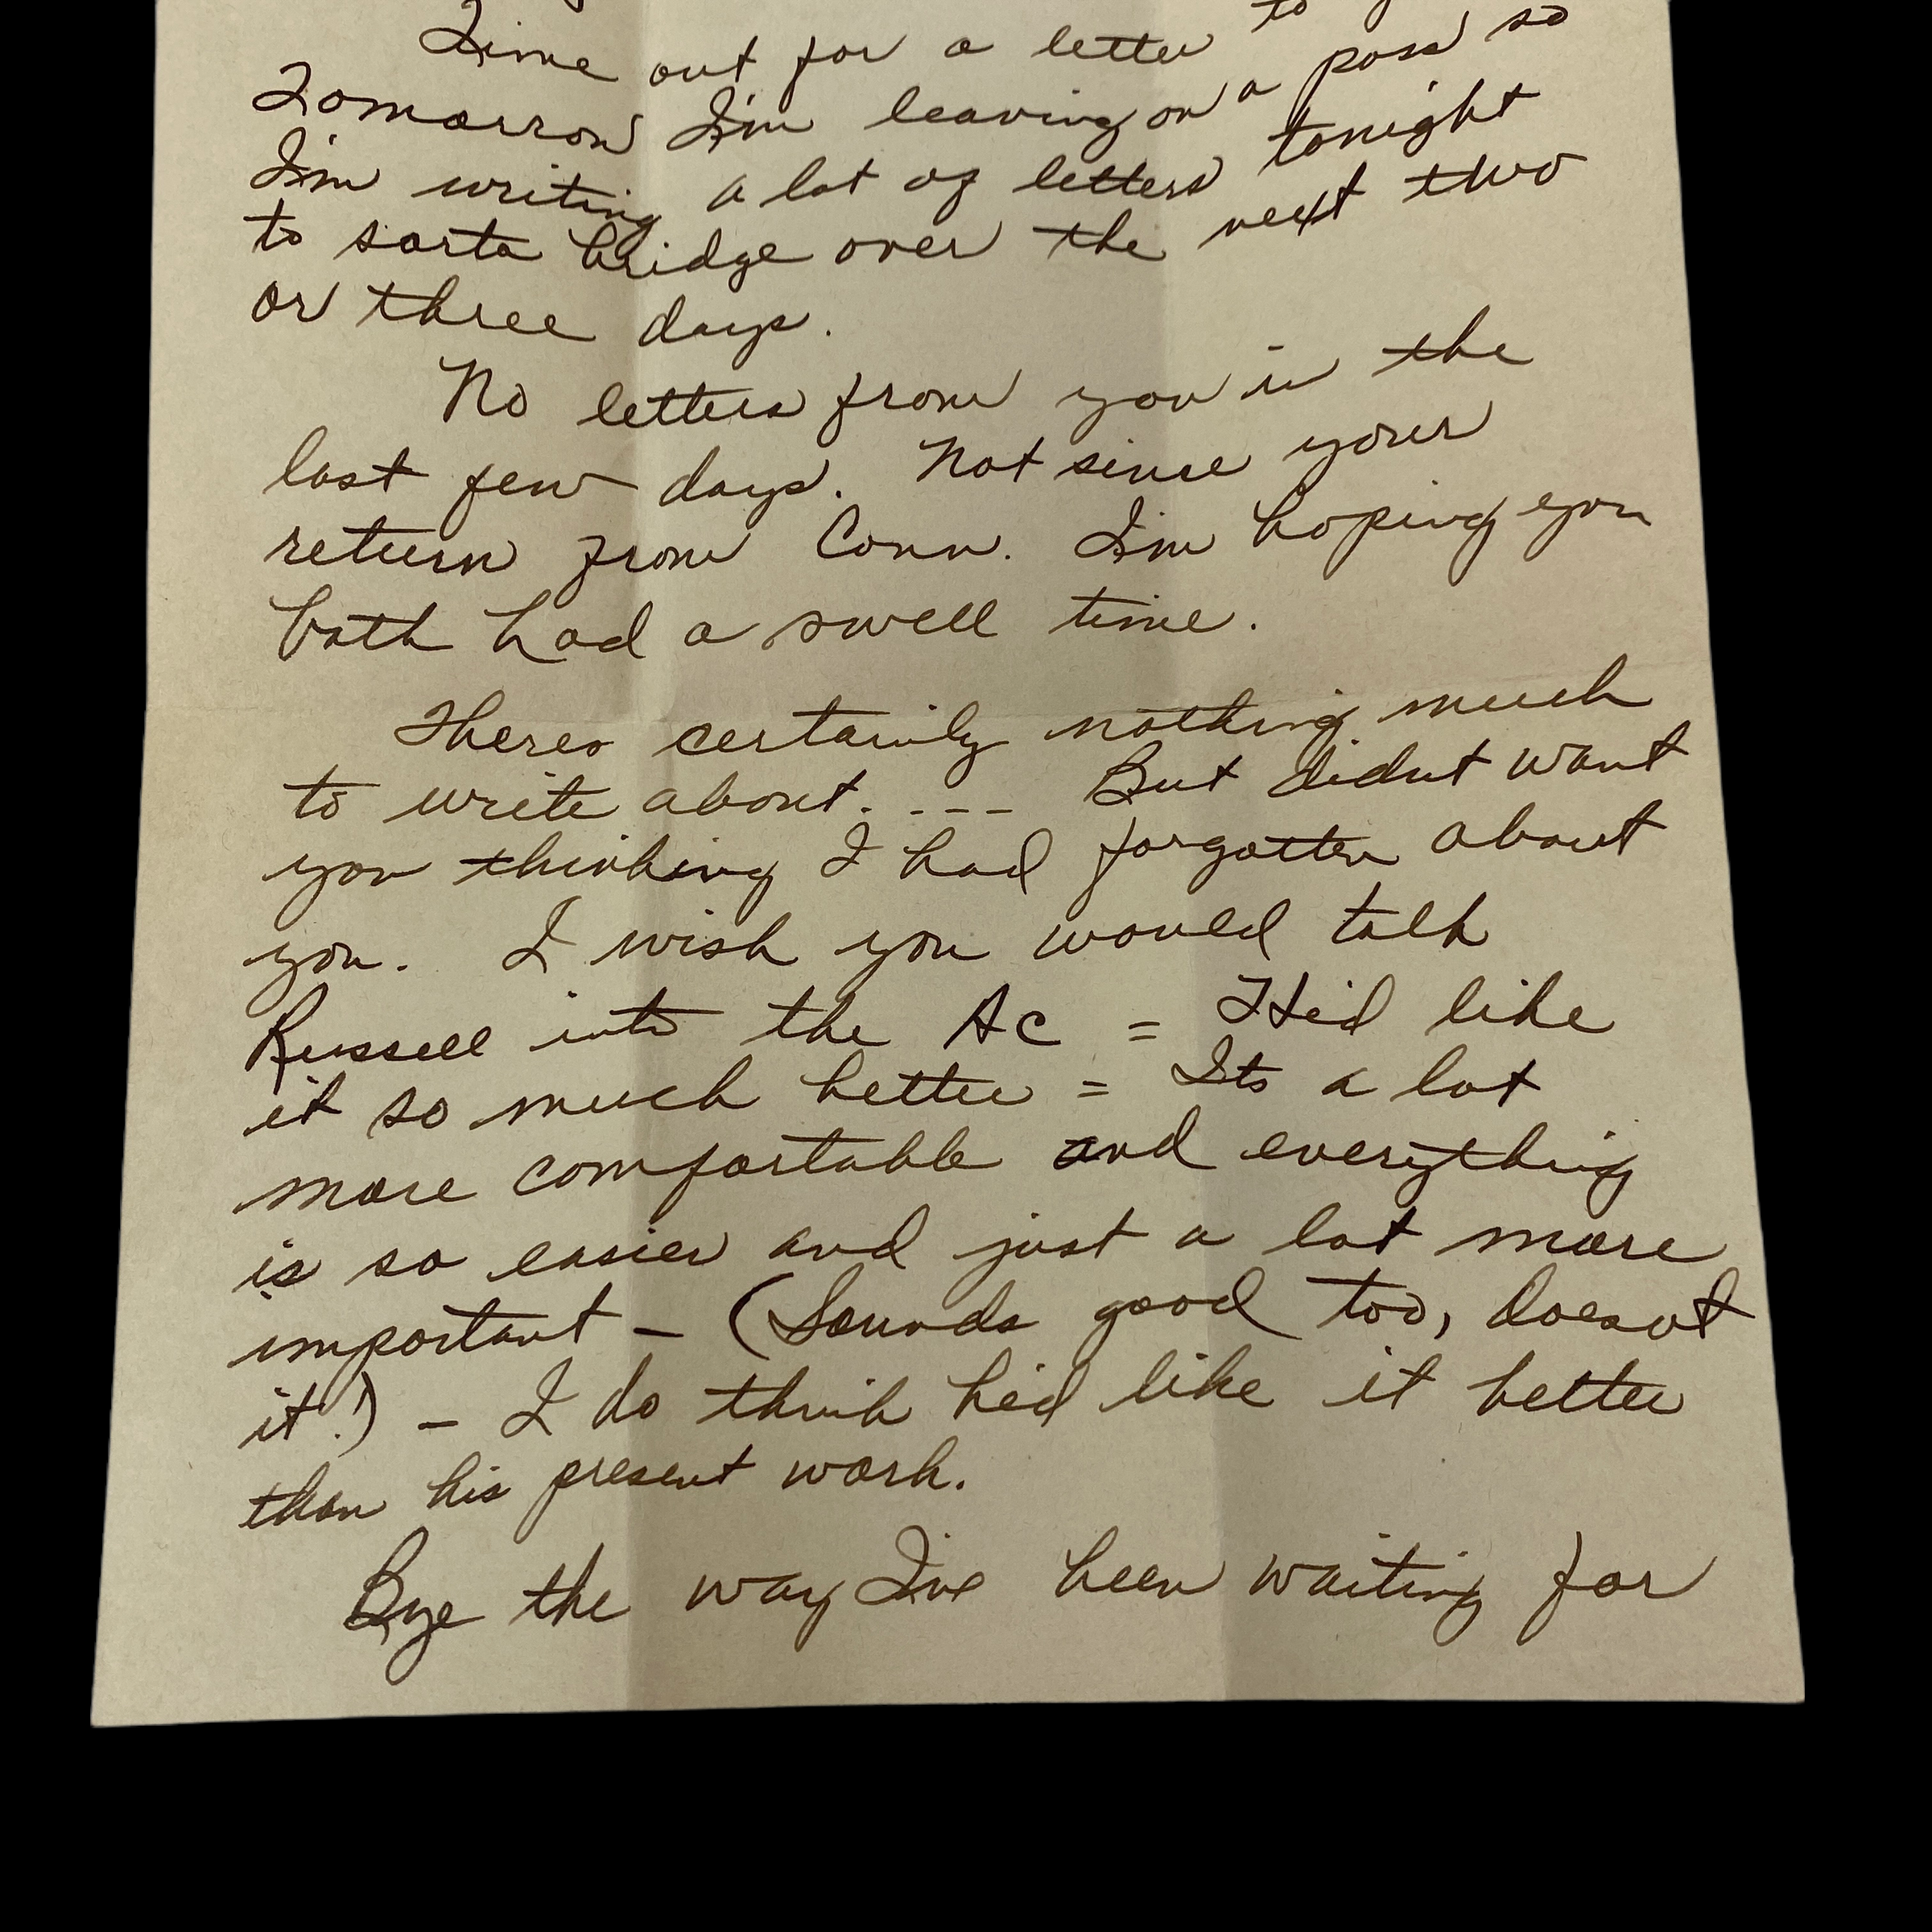 Time out for a letter to
Tomorrow I'm leaving on a pass so
I'm writing a lot of letters tonight
to sorta bridge over the next two
or three days.
No letters from you in the
last few days. Not since your
return from Conn. I'm hoping you
both had a swell time.
Theres certainly nothing much
to write about. --- But didnt want
you thinking I had forgotten about
you. I wish you would talk
Russell into the AC = He'd like
it so much better = Its a lot
more comfortable and everything
is so easier and just a lot more
important - (Sounds good too, doesnt
it!) - I do think he'd like it better
than his present work.
Bye the way I've been waiting for